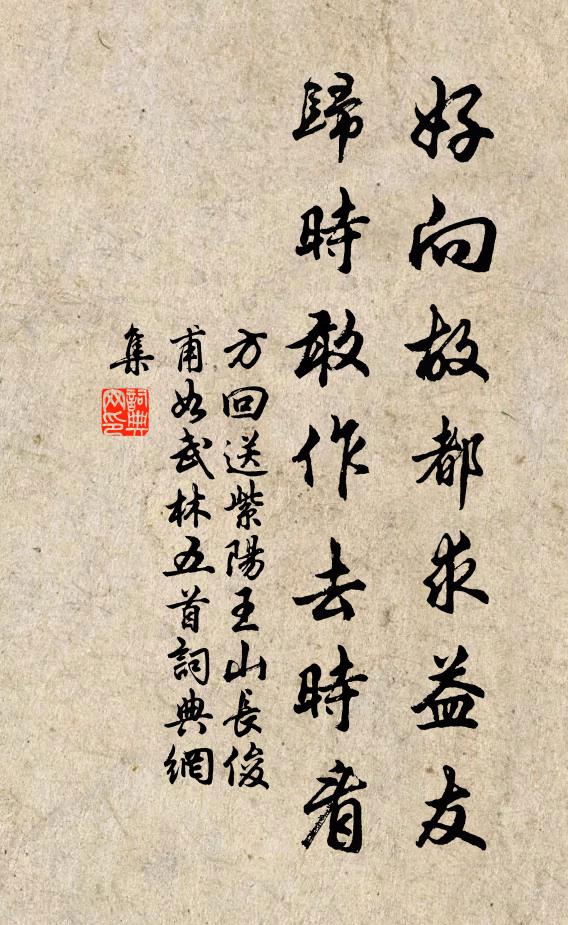 好向故都求益友
歸時敢作去時看
方回送紫陽王山長俊
甫如武林五首詞典網
集
詞典
網印